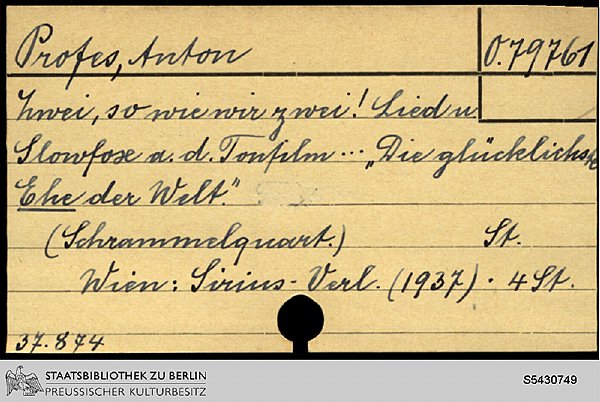 Profes, Anton
O.79761
Zwei, so wie wir zwei! Lied u.
Slowfox a. d. Tonfilm ... „Die glücklichste
Ehe der Welt."
(Schrammelquart.) St.
Wien: Sirius-Verl. (1937). 4 St.
37.874
STAATSBIBLIOTHEK ZU BERLIN
PREUSSISCHER KULTURBESITZ
S5430749